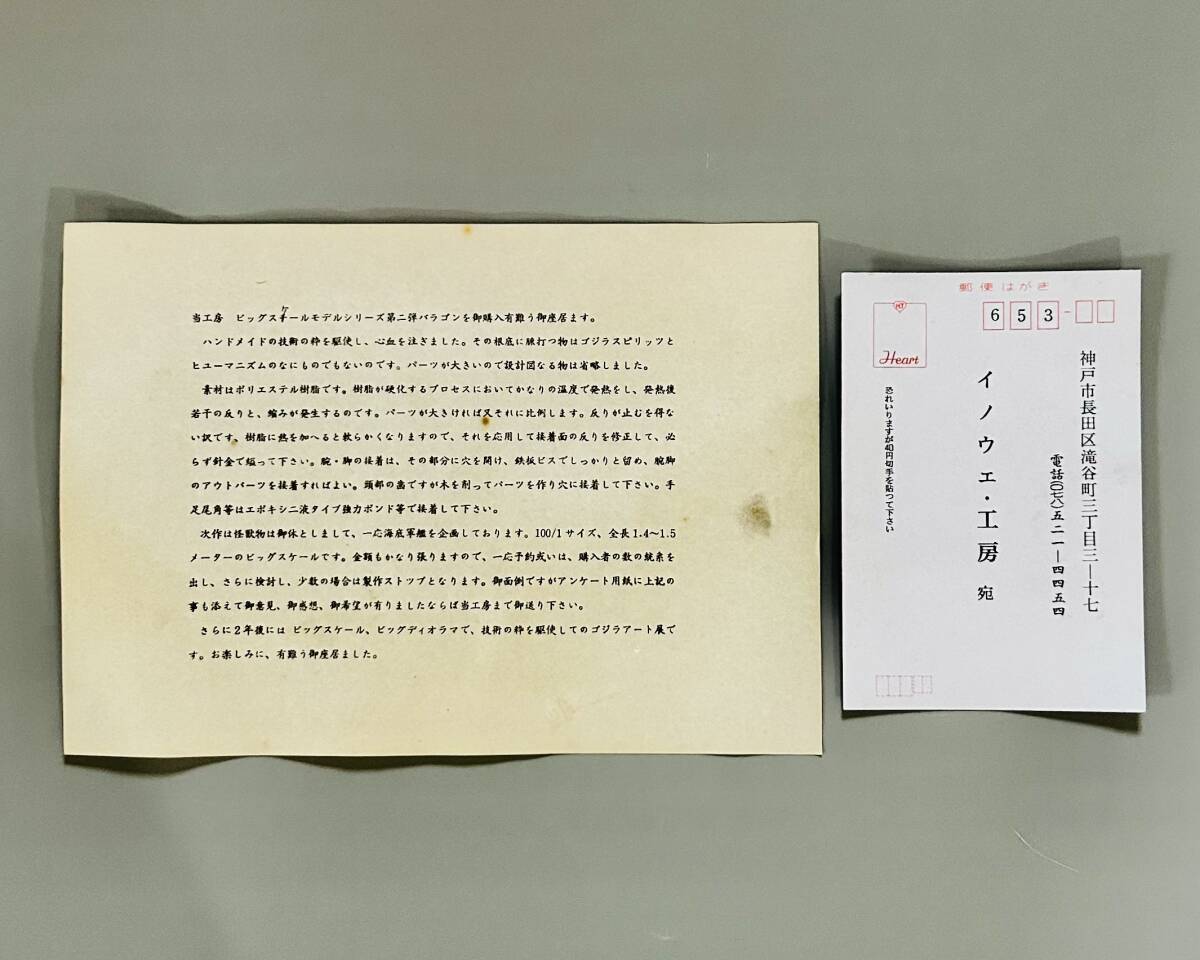 当工房 ビッグスケールモデルシリーズ第二弾バラゴンを御購入有難う御座居ます。
ハンドメイドの技術の粋を駆使し、心血を注ぎました。その根底に脈打つ物はゴジラスピリッツと
ヒューマニズムのなにものでもないのです。パーツが大きいので設計図なる物は省略しました。
素材はポリエステル樹脂です。樹脂が硬化するプロセスにおいてかなりの温度で発熱をし、発熱後
若干の反りと、縮みが発生するのです。パーツが大きければ又それに比例します。反りが止むを得な
い訳です。樹脂に熱を加へると軟らかくなりますので、それを応用して接着面の反りを修正して、必
らず針金で縫って下さい。腕・脚の接着は、その部分に穴を開け、鉄板ビスでしっかりと留め、腕脚
のアウトパーツを接着すればよい。頭部の歯ですが木を削ってパーツを作り穴に接着して下さい。手
足尾角等はエポキシ二液タイプ強力ボンド等で接着して下さい。
次作は怪獣物は御休としまして、一応海底軍艦を企画しております。100/1サイズ、全長1.4〜1.5
メーターのビッグスケールです。金額もかなり張りますので、一応予約或いは、購入者の数の統系を
出し、さらに検討し、少数の場合は製作ストップとなります。御面倒ですがアンケート用紙に上記の
事も添えて御意見、御感想、御希望が有りましたならば当工房まで御送り下さい。
さらに2年後には ビッグスケール、ビッグディオラマで、技術の粋を駆使してのゴジラアート展で
す。お楽しみに、有難う御座居ました。
郵便はがき
653
Heart
神戸市長田区滝谷町三丁目三―十七
電話(〇七八)五二一―四四五四
イノウェ・工房 宛
恐れいりますが40円切手を貼って下さい